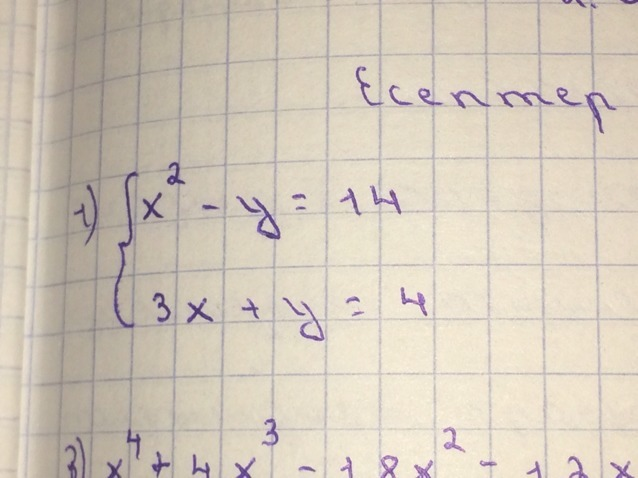 Есептер
1) { x² - y = 14
3x + y = 4
3) x⁴ + 4x³ - 18x² - 12x